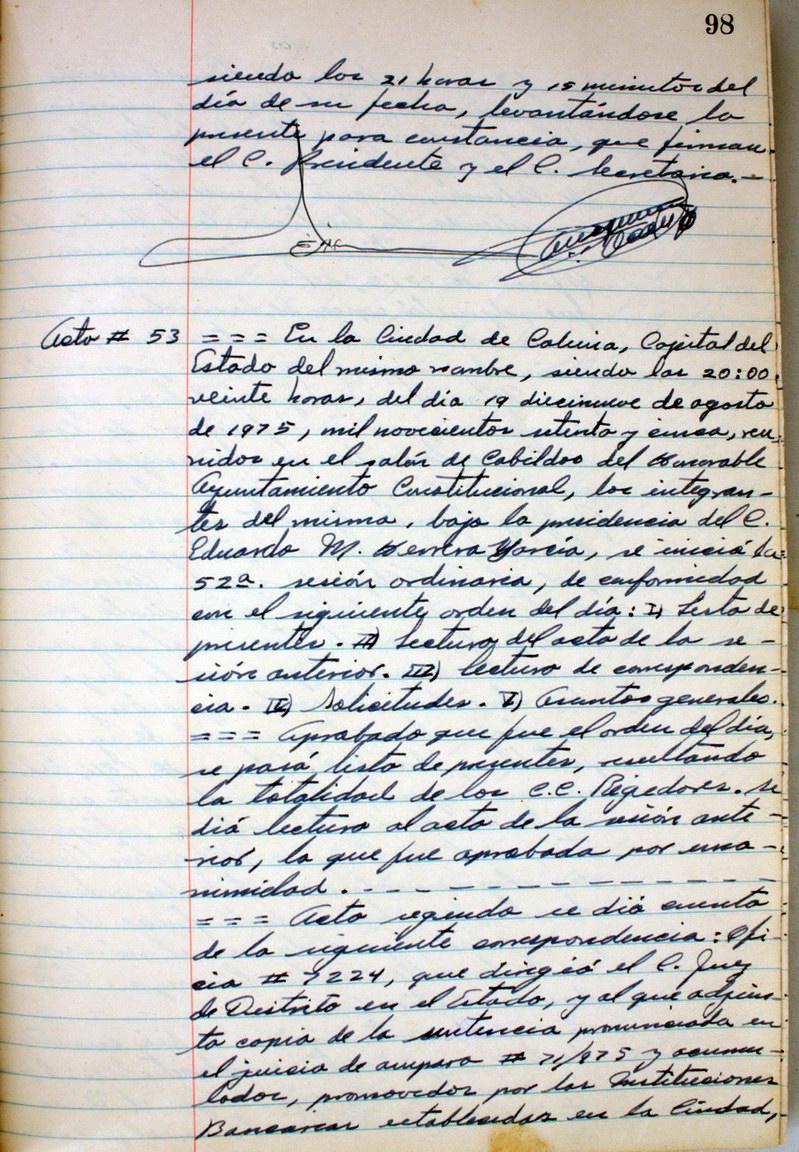 98
siendo las 21 horas y 15 minutos del
día de su fecha, levantándose la
presente para constancia, que firman
el C. Presidente y el C. Secretario.-
Acta # 53 === En la Ciudad de Colima, Capital del
Estado del mismo nombre, siendo las 20:00
veinte horas, del día 19 diecinueve de agosto
de 1975, mil novecientos setenta y cinco, reu-
nidos en el salón de Cabildos del Honorable
Ayuntamiento Constitucional, los integran-
tes del mismo, bajo la presidencia del C.
Eduardo M. Herrera García, se inició la
52a. sesión ordinaria, de conformidad
con el siguiente orden del día: I) Lista de
presentes. II) Lectura del acta de la se-
sión anterior. III) Lectura de corresponden-
cia. IV) Solicitudes. V) Asuntos generales.
=== Aprobado que fue el orden del día,
se pasó lista de presentes, resultando
la totalidad de los C.C. Regidores. Se
dió lectura al acta de la sesión ante-
rior, la que fue aprobada por una-
nimidad. - - - - - - - - - - - -
=== Acto seguido se dió cuenta
de la siguiente correspondencia: Ofi-
cio # 7224, que dirigió el C. Juez
de Distrito en el Estado, y al que adjun-
ta copia de la sentencia pronunciada en
el juicio de amparo # 71/975 y acumu-
lados, promovidos por las Instituciones
Bancarias establecidas en la Ciudad,